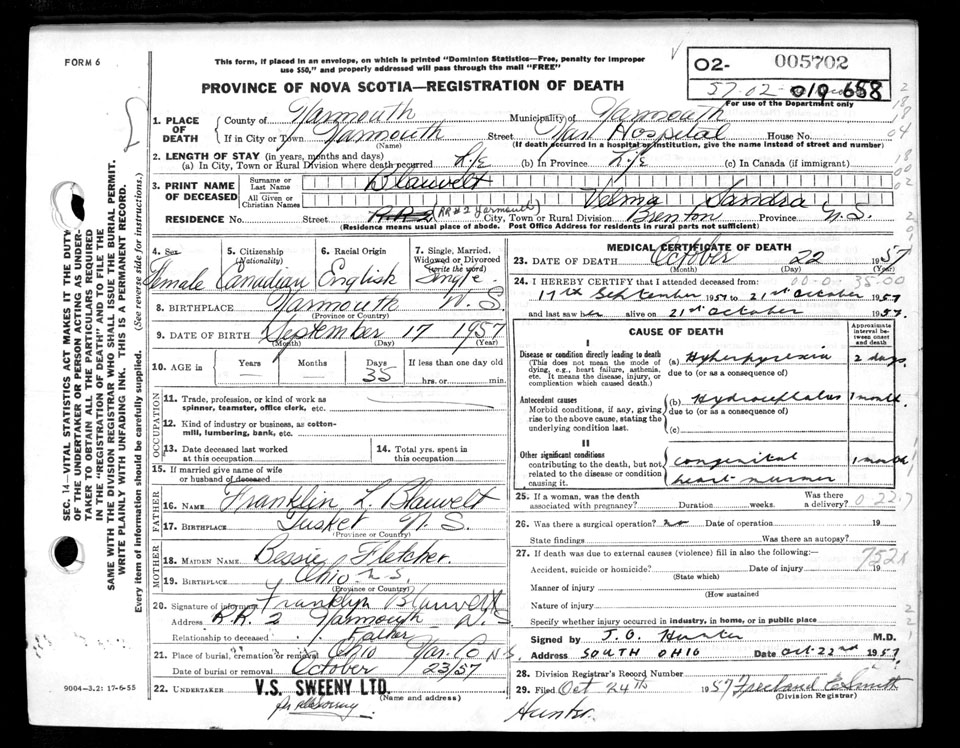 FORM 6
This form, if placed in an envelope, on which is printed "Dominion Statistics—Free, penalty for improper
use $50," and properly addressed will pass through the mail "FREE"
02- 005702
57-02- 019 658
For use of the Department only
PROVINCE OF NOVA SCOTIA—REGISTRATION OF DEATH
1. PLACE OF DEATH
County of Yarmouth Municipality of Yarmouth
If in City or Town Yarmouth Street Yar Hospital House No.
(Name) (If death occurred in a hospital or institution, give the name instead of street and number)
2. LENGTH OF STAY (in years, months and days)
(a) In City, Town or Rural Division where death occurred Life (b) In Province Life (c) In Canada (if immigrant)
3. PRINT NAME OF DECEASED
Surname or Last Name Blauvelt
All Given or Christian Names Velma Sandra
RESIDENCE No. Street RR2 (RR #2 Yarmouth) City, Town or Rural Division Brenton Province N.S.
(Residence means usual place of abode. Post Office Address for residents in rural parts not sufficient)
4. Sex Female
5. Citizenship (Nationality) Canadian
6. Racial Origin English
7. Single, Married, Widowed or Divorced (write the word) Single
8. BIRTHPLACE Yarmouth N.S.
(Province or Country)
9. DATE OF BIRTH September 17 1957
(Month) (Day) (Year)
10. AGE in Years — Months — Days 35 If less than one day old
hrs. or min.
OCCUPATION
11. Trade, profession, or kind of work as
spinner, teamster, office clerk, etc.
12. Kind of industry or business, as cotton-
mill, lumbering, bank, etc.
13. Date deceased last worked
at this occupation
14. Total yrs. spent in
this occupation
15. If married give name of wife
or husband of deceased
FATHER
16. NAME Franklin L. Blauvelt
17. BIRTHPLACE Tusket N.S.
(Province or Country)
MOTHER
18. MAIDEN NAME Bessie Fletcher.
19. BIRTHPLACE Ohio N.S.
(Province or Country)
20. Signature of informant Franklin Blauvelt
Address R.R. 2 Yarmouth N.S
Relationship to deceased Father
21. Place of burial, cremation or removal Ohio Yar. Co N.S.
Date of burial or removal October 23/57
22. UNDERTAKER V.S. SWEENY LTD.
(Name and address)
MEDICAL CERTIFICATE OF DEATH
23. DATE OF DEATH October 22 1957
(Month) (Day) (Year)
24. I HEREBY CERTIFY that I attended deceased from:
17th September 1957 to 21st October 1957
and last saw her alive on 21st October 1957.
CAUSE OF DEATH
Approximate interval between onset and death
I
Disease or condition directly leading to death
(This does not mean the mode of
dying, e.g., heart failure, asthenia,
etc. It means the disease, injury, or
complication which caused death.)
(a) Hyperpyrexia 2 days
due to (or as a consequence of)
Antecedent causes
Morbid conditions, if any, giving
rise to the above cause, stating the
underlying condition last.
(b) Hydrocephalus 1 month.
due to (or as a consequence of)
(c)
II
Other significant conditions
contributing to the death, but not
related to the disease or condition
causing it.
congenital 1 month
heart murmer
25. If a woman, was the death
associated with pregnancy? Duration weeks. Was there
a delivery?
26. Was there a surgical operation? no Date of operation 19
State findings Was there an autopsy?
27. If death was due to external causes (violence) fill in also the following:—
752
Accident, suicide or homicide? Date of injury 19
(State which)
Manner of injury
(How sustained
Nature of injury
Specify whether injury occurred in industry, in home, or in public place
Signed by J. O. Hunter M.D.
Address SOUTH OHIO Date Oct-22nd 1957
28. Division Registrar's Record Number
29. Filed Oct 24th 1957 Freeland E. Smith
(Division Registrar)
Hunter.
9004-3.2: 17-6-55
SEC. 14—VITAL STATISTICS ACT MAKES IT THE DUTY
OF THE UNDERTAKER OR PERSON ACTING AS UNDER-
TAKER TO OBTAIN ALL THE PARTICULARS REQUIRED
IN THE "REGISTRATION OF DEATH" AND TO FILE THE
SAME WITH THE DIVISION REGISTRAR WHO SHALL ISSUE THE BURIAL PERMIT.
WRITE PLAINLY WITH UNFADING INK. THIS IS A PERMANENT RECORD.
Every item of information should be carefully supplied. (See reverse side for instructions.)